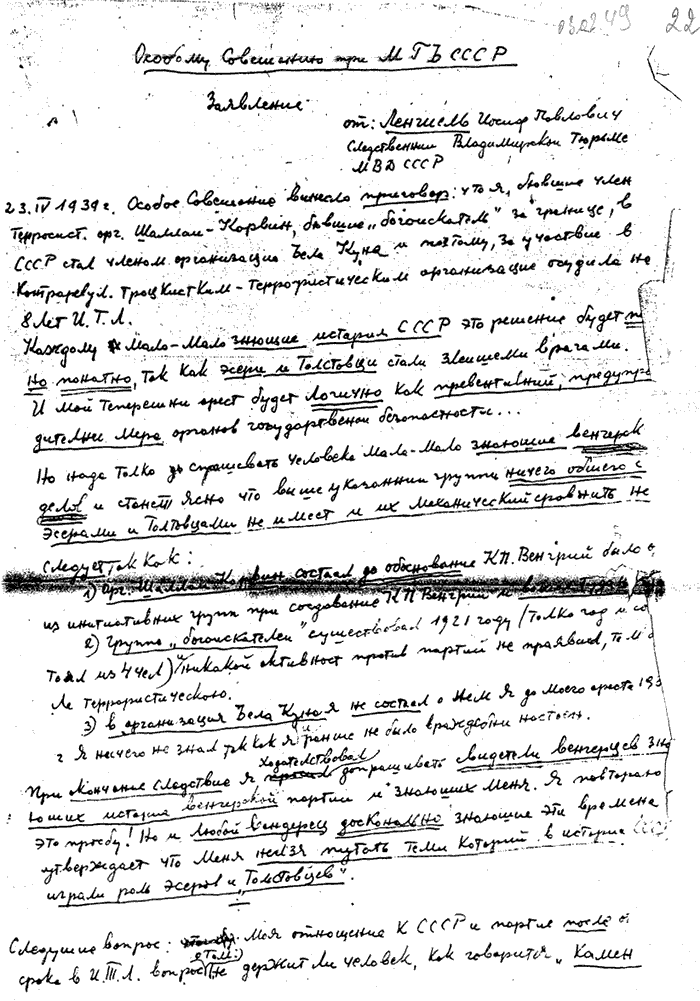 03.02 49 22
Особому Совешению при МГБ СССР
Заявление
от: Ленгиель Иосиф Павлович
следственний Владимирской Тюрьме
МВД СССР
23.IV 1939 г. Особое Совешение винесло приговор: что я, бывшие член
Террорист. орг. Шаллаи-Корвин, бывшие „богоискатель" за границе, в
СССР стал членом организацие Бела Куна и поэтому, за участие в
контрревул. Троцкистким-Террористическим организацие осудила на
8 лет И.Т.Л.
Каждому Мало-Мало знюшие история СССР это решение будет
но понатно, так как эсери и Толстовци стали злеишеми врагами.
И мой теперешни арест будет логично как превентивний, предупре
дителни мера органов государствений безопасности...
Но надо толко до спрашевать человека мало-мало знаюшие венгерск
делов и станет ясно что више указаннии групи ничего обшего с
Эсерами и Толтовцами не имеет и их механический сровжить не
следует, так как:
1) Орг. Шаллаи-Корвин состаел до обоснование КП. Венгрий било о
из инитиативних групп при создование КП Венгрии и
2) Группа „богоискатели" сушествовал 1921 году (толко год и со
тоял из 4 чел) никакой активност против партий не праявиал, тем о
ле террористическою.
3) в организация Бела Куна я не состаел о нем я до моего ареста 193
г я ничего не знал так как я ранше не било враждебни настоен.
При окончание следствие я ходатействовал допрашивать свидетели венгерцев зна
юших история венгерской партии и знаюших меня. Я повтораю
это просбу! Но и любой вендерец досконално знаюшие эти времена
утверждает что меня нелзя путать теми которий в история СССР
играли роль эсеров и „Толстовцев".
Следушие вопрос: Моя отношение к СССР и партие после о
срока в И.Т.Л. вопрос о том: не держит ли человек, как говорится „Камен